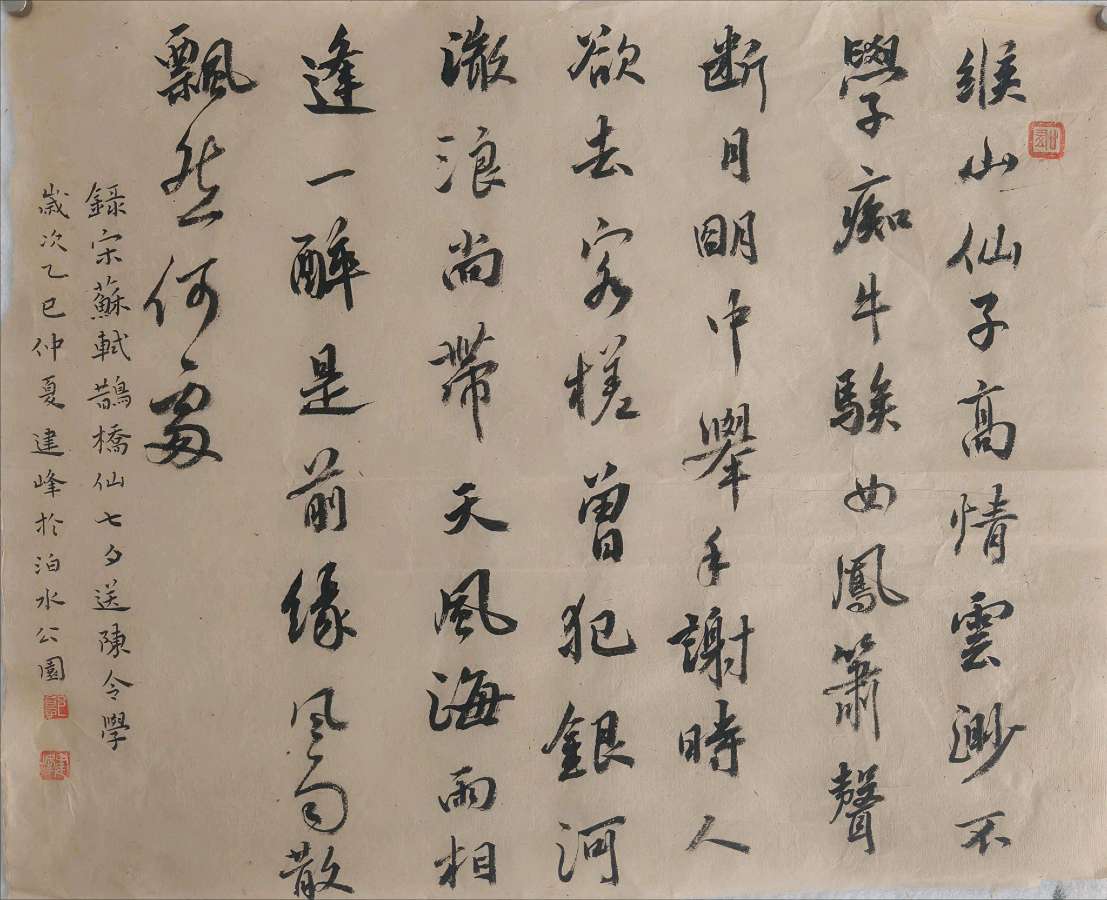 緱山仙子高情雲渺不
學痴牛騃女鳳簫聲
斷月明中舉手謝時人
欲去客槎曾犯銀河
微浪尚帶天風海雨相
逢一醉是前緣風雨散
飄然何處
錄宋蘇軾鵲橋仙七夕送陳令學
歲次乙巳仲夏建峰於泊水公園